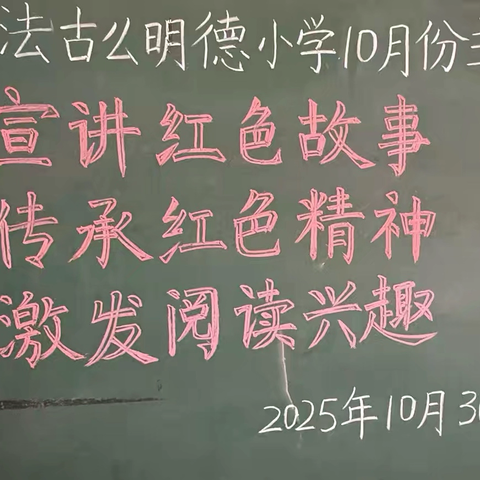 法古么明德小学10月份主
宣讲红色故事
传承红色精神
激发阅读兴趣
2025年10月30